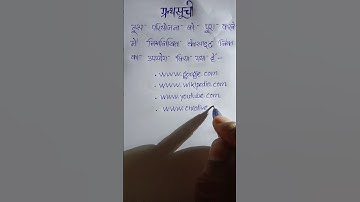 ग्रन्थसूची
इस परियोजना को पूरा करने
में निम्नलिखित वेबसाइट लिंक
का उपयोग किया गया है -
• www.google.com
• www.wikipedia.com
• www.youtube.com
• www.creative